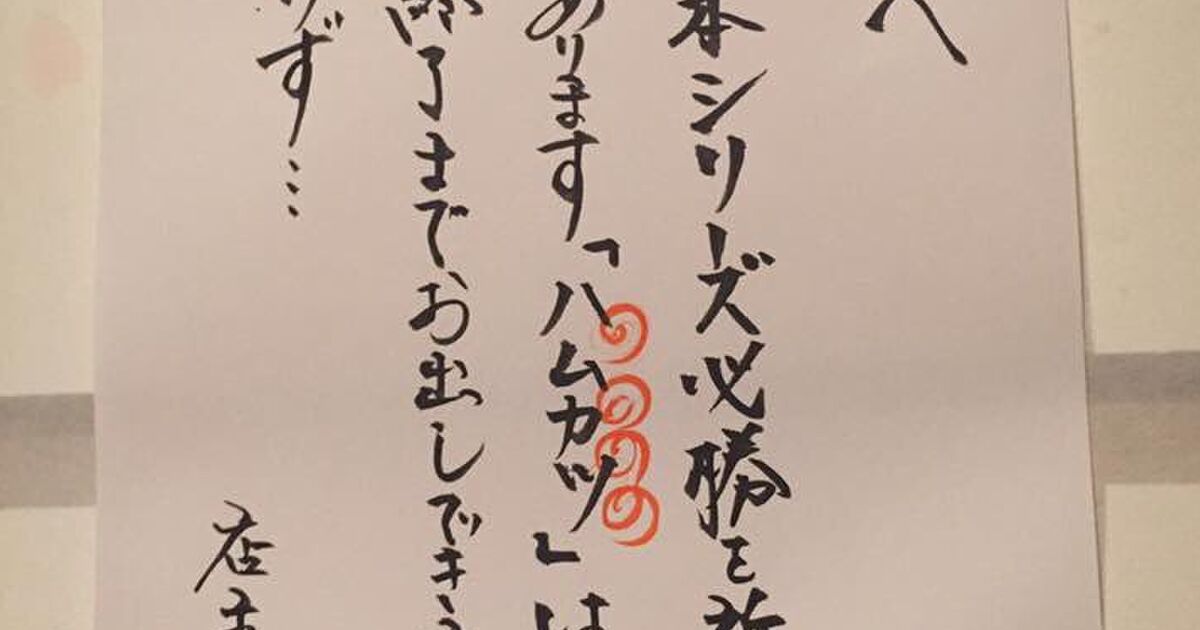 へ
本シリーズ必勝を祈
あります「ハムカツ」は
終了までお出しできま
げず…
店主